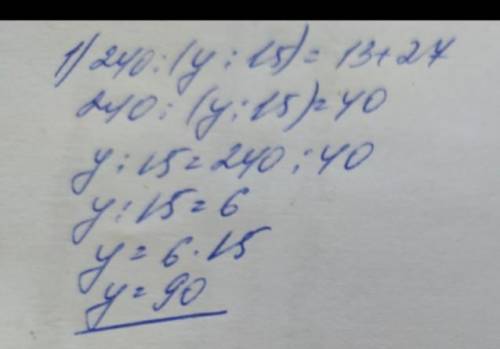 1) 240 : (y : 15) = 13 + 27
240 : (y : 15) = 40
y : 15 = 240 : 40
y : 15 = 6
y = 6 · 15
y = 90